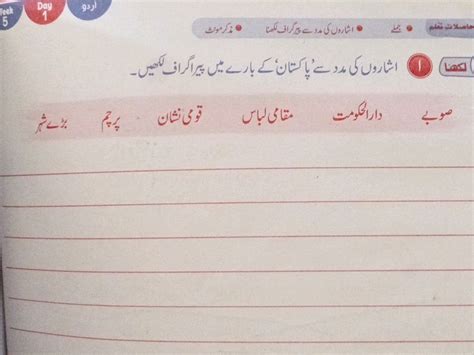 Week 5
Day 1
اردو
حاصلاتِ تعلم • جملے • اشاروں کی مدد سے پیراگراف لکھنا • مذکر مونث
لکھنا ۱ اشاروں کی مدد سے 'پاکستان' کے بارے میں پیراگراف لکھیں۔
صوبے دارالحکومت مقامی لباس قومی نشان پرچم بڑے شہر